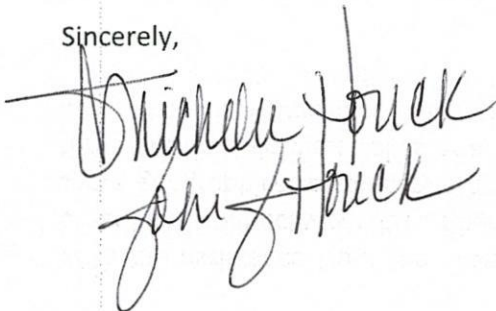 Sincerely,
Michele Houck
John Houck